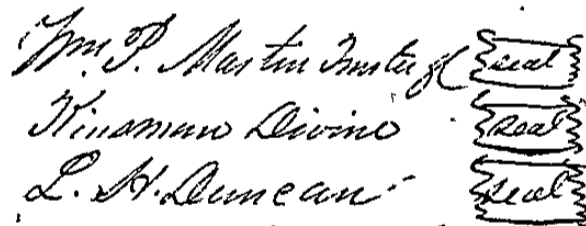 Wm. P. Martin Trustee &c seal
Kinsman Divine seal
L. H. Duncan seal